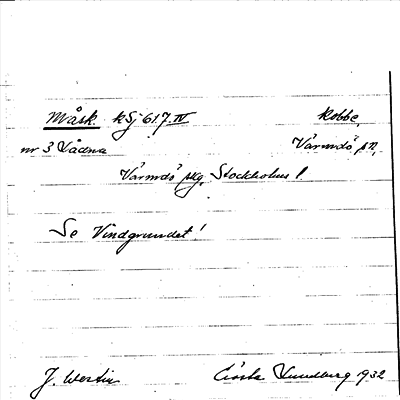 Måsk. kSj 617.IV Kobbe,
nr 3 Lådna Värmdö sn,
Värmdö skg. Stockholms l
Se Vindgrundet!
J. Westin Gösta Lundberg 1932